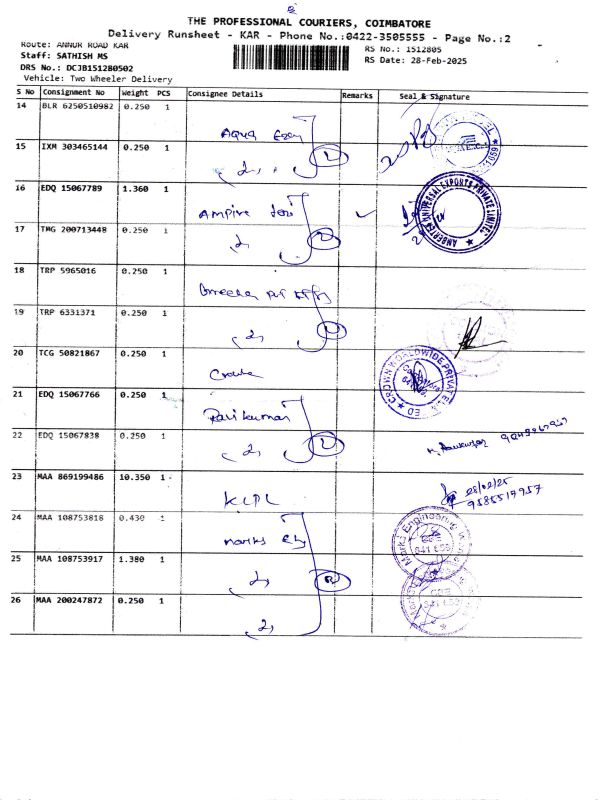 THE PROFESSIONAL COURIERS, COIMBATORE
Delivery Runsheet - KAR - Phone No.:0422-3505555 - Page No.:2
Route: ANNUR ROAD KAR
RS No.: 1512805
Staff: SATHISH MS
RS Date: 28-Feb-2025
DRS No.: DCJB151280502
Vehicle: Two Wheeler Delivery
S No Consignment No Weight PCS Consignee Details Remarks Seal & Signature
14 BLR 6250510982 0.250 1
Aqua
15 IXM 303465144 0.250 1
16 EDQ 15067789 1.360 1
Ampire
17 TMG 200713448 0.250 1
18 TRP 5965016 0.250 1
19 TRP 6331371 0.250 1
20 TCG 50821867 0.250 1
CROWN WORLDWIDE PRIVATE
21 EDQ 15067766 0.250 1
Ravikumar
22 EDQ 15067838 0.250 1
23 MAA 869199486 10.350 1
KCPL
28/02/25
9585517957
24 MAA 108753818 0.430 1
Marks Eng
Marks Engineering
CBE
641 659
25 MAA 108753917 1.380 1
26 MAA 200247872 0.250 1